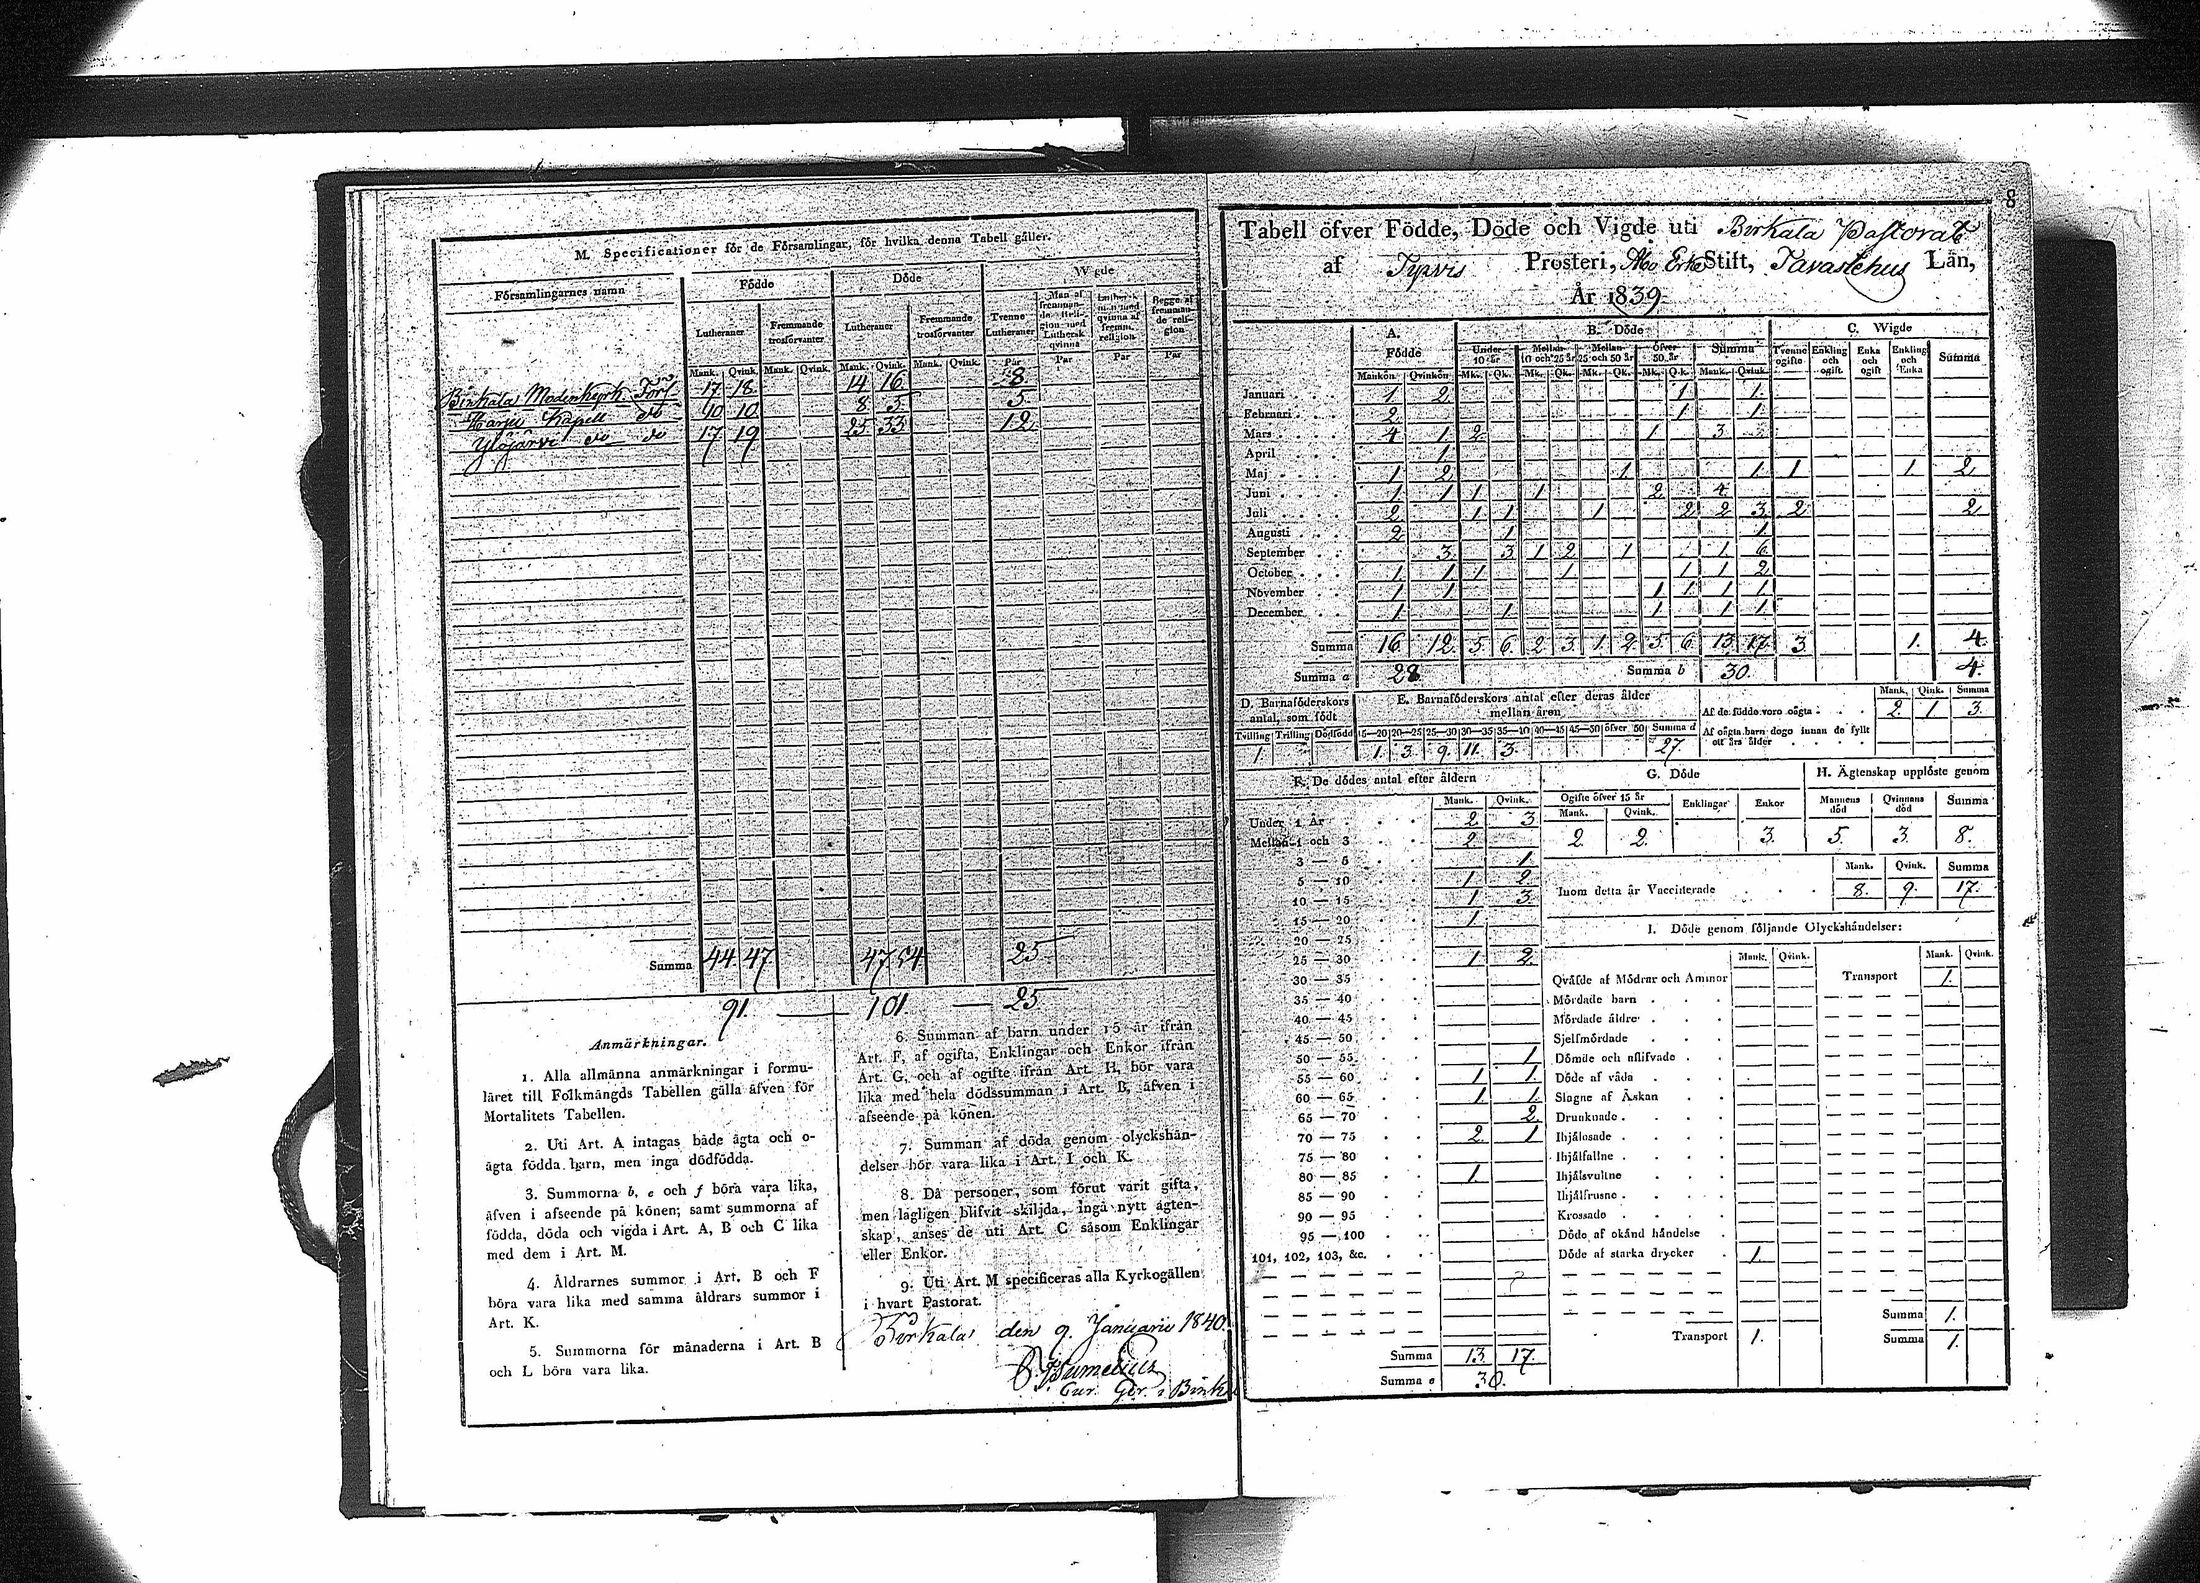 M. Specificationer för de Församlingar, för hvilka denna Tabell gäller.
Församlingarnes namn
Födde
Döde
Wigde
Lutheraner
Fremmande trosförvanter
Lutheraner
Fremmande trosförvanter
Tvenne Lutheraner
Man af fremmande Religion med Luthersk qvinna
Luthersk man med qvinna af fremm. religion
Begge af fremmande religion
Mank. Qvink. Mank. Qvink. Mank. Qvink. Mank. Qvink. Par Par Par Par
Birkala Moderkyrk. Förs. 17 18 14 16 8
Harju Kapell do 10 10 8 5 5
Ylöjärvi do do 17 19 25 33 12
Summa 44 47 47 54 25
91. — 101 — 25
Anmärkningar.
1. Alla allmänna anmärkningar i formu-
läret till Folkmängds Tabellen gälla äfven för
Mortalitets Tabellen.
2. Uti Art. A intagas både ägta och o-
ägta födda barn, men inga dödfödda.
3. Summorna b, e och f böra vara lika,
äfven i afseende på könen; samt summorna af
födda, döda och vigda i Art. A, B och C lika
med dem i Art. M.
4. Åldrarnes summor i Art. B och F
böra vara lika med samma åldrars summor i
Art. K.
5. Summorna för månaderna i Art. B
och L böra vara lika.
6. Summan af barn under 15 år ifrån
Art. F, af ogifta, Enklingar och Enkor ifrån
Art. G, och af ogifte ifrån Art. H, bör vara
lika med hela dödssumman i Art. B, äfven i
afseende på könen.
7. Summan af döda genom olyckshän-
delser bör vara lika i Art. I och K.
8. Då personer, som förut varit gifta,
men lagligen blifvit skiljda, ingå nytt ägten-
skap, anses de uti Art. C såsom Enklingar
eller Enkor.
9. Uti Art. M specificeras alla Kyrkogällen
i hvart Pastorat.
Birkala den 9. Januarii 1840.
8
Tabell öfver Födde, Döde och Vigde uti Birkala Pastorat
af Tyrvis Prosteri, Åbo Erke Stift, Tavastehus Län,
År 1839.
A. Födde
B. Döde
C. Wigde
Under 10 år
Mellan 10 och 25 år
Mellan 25 och 50 år
Öfver 50 år
Summa
Tvenne ogifte
Enkling och ogift
Enka och ogift
Enkling och Enka
Summa
Mankön Qvinkön Mk. Qk. Mk. Qk. Mk. Qk. Mk. Qk. Mank. Qvink.
Januari 1 2 1 1
Februari 2 1 1
Mars 4 1 2 1 3
April 1
Maj 1 2 1 1 1 1 2
Juni 1 1 1 1 2 4
Juli 2 1 1 1 2 2 3 2 2
Augusti 2 1 1
September 3 3 1 2 1 1 6
October 1 1 1 1 1 1 2
November 1 1 1 1 1 1
December 1 1 1 1 1
Summa 16 12 5 6 2 3 1 2 5 6 13 17 3 1 4
Summa a 28 Summa b 30. 4.
D. Barnaföderskors antal, som födt
Tvilling Trilling Dödfödd
1
E. Barnaföderskors antal efter deras ålder
mellan åren
15—20 20—25 25—30 30—35 35—40 40—45 45—50 öfver 50 Summa d
1 3 9 11 3 27
Mank. Qink. Summa
Af de födde voro oägta 2 1 3
Af oägta barn dogo innan de fyllt
ett års ålder
F. De dödes antal efter åldern
Mank. Qvink.
Under 1 År 2 3
Mellan 1 och 3 2
3 — 5 1
5 — 10 1 2
10 — 15 1 3
15 — 20 1
20 — 25
25 — 30 1 2
30 — 35
35 — 40
40 — 45
45 — 50
50 — 55 1
55 — 60 1 1
60 — 65 1 1
65 — 70 2
70 — 75 2 1
75 — 80
80 — 85 1
85 — 90
90 — 95
95 — 100
101, 102, 103, &c.
Summa 13 17.
Summa e 30.
G. Döde
Ogifte öfver 15 år
Enklingar
Enkor
Mank. Qvink.
2 2 3
H. Ägtenskap upplöste genom
Mannens död
Qvinnans död
Summa
5. 3. 8.
Mank. Qvink. Summa
Inom detta år Vaccinerade 8. 9. 17.
I. Döde genom följande Olyckshändelser:
Mank. Qvink. Mank. Qvink.
Qväfde af Mödrar och Ammor Transport 1.
Mördade barn
Mördade äldre
Sjelfmördade
Dömde och aflifvade
Döde af våda
Slagne af Åskan
Drunknade
Ihjälosade
Ihjälfallne
Ihjälsvultne
Ihjälfrusne
Krossade
Döde af okänd händelse
Döde af starka drycker 1.
Summa 1.
Transport 1. Summa 1.